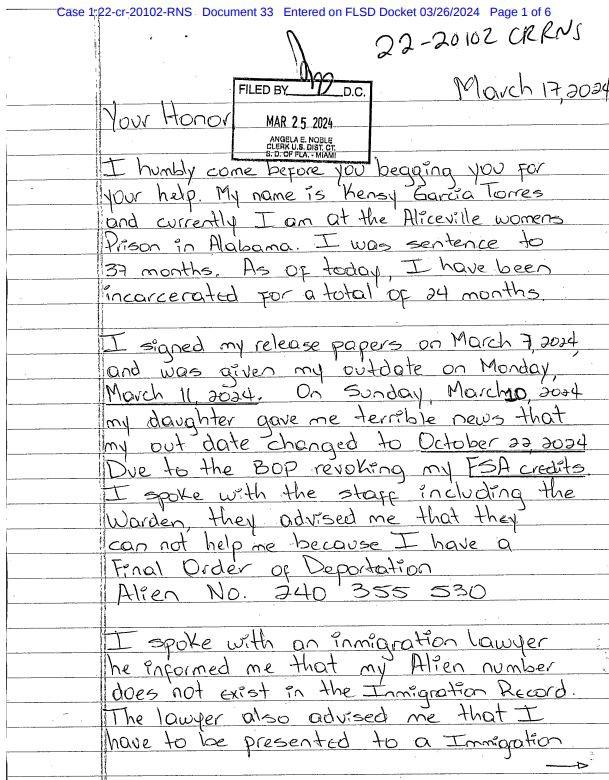 Case 1:22-cr-20102-RNS Document 33 Entered on FLSD Docket 03/26/2024 Page 1 of 6
22-20102 CRRNS
March 17, 2024
FILED BY D.C.
MAR 25 2024
ANGELA E. NOBLE
CLERK U.S. DIST. CT.
S. D. OF FLA. - MIAMI
Your Honor
I humbly come before you begging you for
your help. My name is Kensy Garcia Torres
and currently I am at the Aliceville womens
Prison in Alabama. I was sentence to
37 months. As of today, I have been
incarcerated for a total of 24 months.
I signed my release papers on March 7, 2024
and was given my outdate on Monday,
March 11, 2024. On Sunday, March 10, 2024
my daughter gave me terrible news that
my out date changed to October 22, 2024
Due to the BOP revoking my FSA credits.
I spoke with the staff including the
Warden, they advised me that they
can not help me because I have a
Final Order of Deportation
Alien No. 240 355 530
I spoke with an inmigration lawyer
he informed me that my Alien number
does not exist in the Inmigration Record.
The lawyer also advised me that I
have to be presented to a Immigration